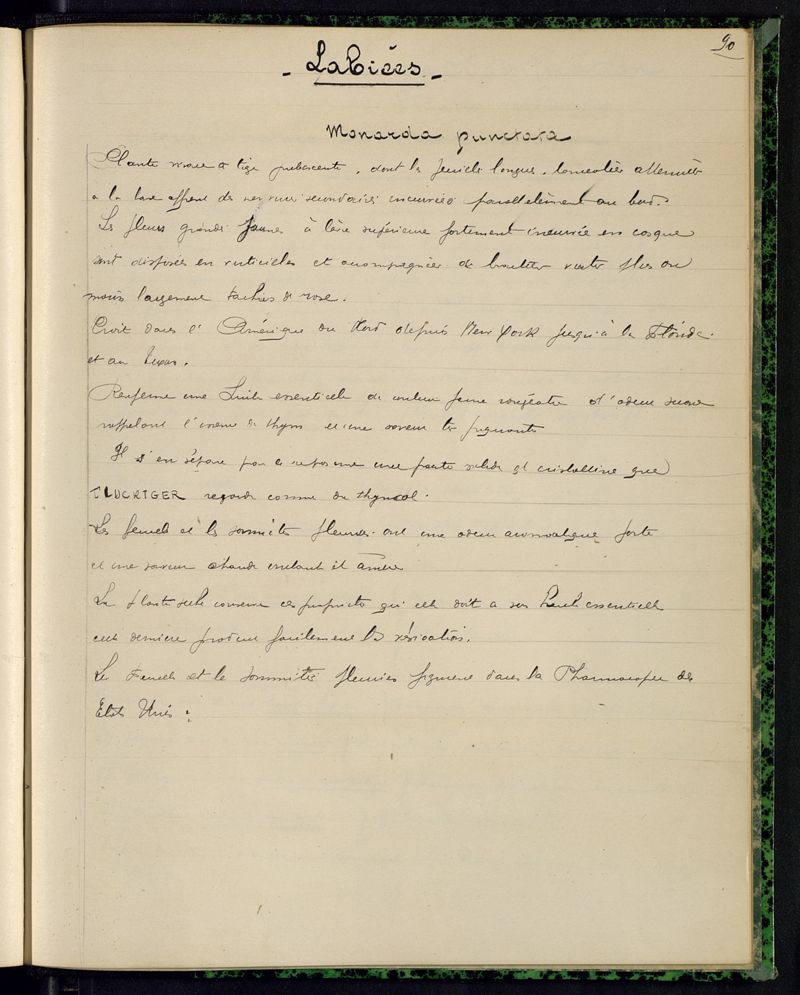 90
- Labiées -
Monarda punctata
Plante vivace à tige pubescente, dont les feuilles longues, lancéolées atténuées
à la base offrent des nervures secondaires incurvées parallèlement au bord.
Les fleurs grandes jaunes à lèvre supérieure fortement incurvée en casque
sont disposées en verticilles et accompagnées de bractées vertes plus ou
moins largement tachées de rose.
Croit dans l'Amérique du Nord depuis New York jusqu'à la Floride
et au Texas.
Renferme une huile essentielle de couleur jaune rougeâtre d'odeur suave
rappelant l'essence de thym et une saveur très piquante
Il s'en sépare par le repos une partie solide et cristalline que
FLUCKIGER regarde comme du thymol.
Les feuilles et les sommités fleuries ont une odeur aromatique forte
et une saveur chaude brulante et amère
La plante sèche conserve ces propriétés qu'elle doit à son huile essentielle
cette dernière produit facilement la vésication.
Les feuilles et les sommités fleuries figurent dans la Pharmacopée des
Etats Unis.